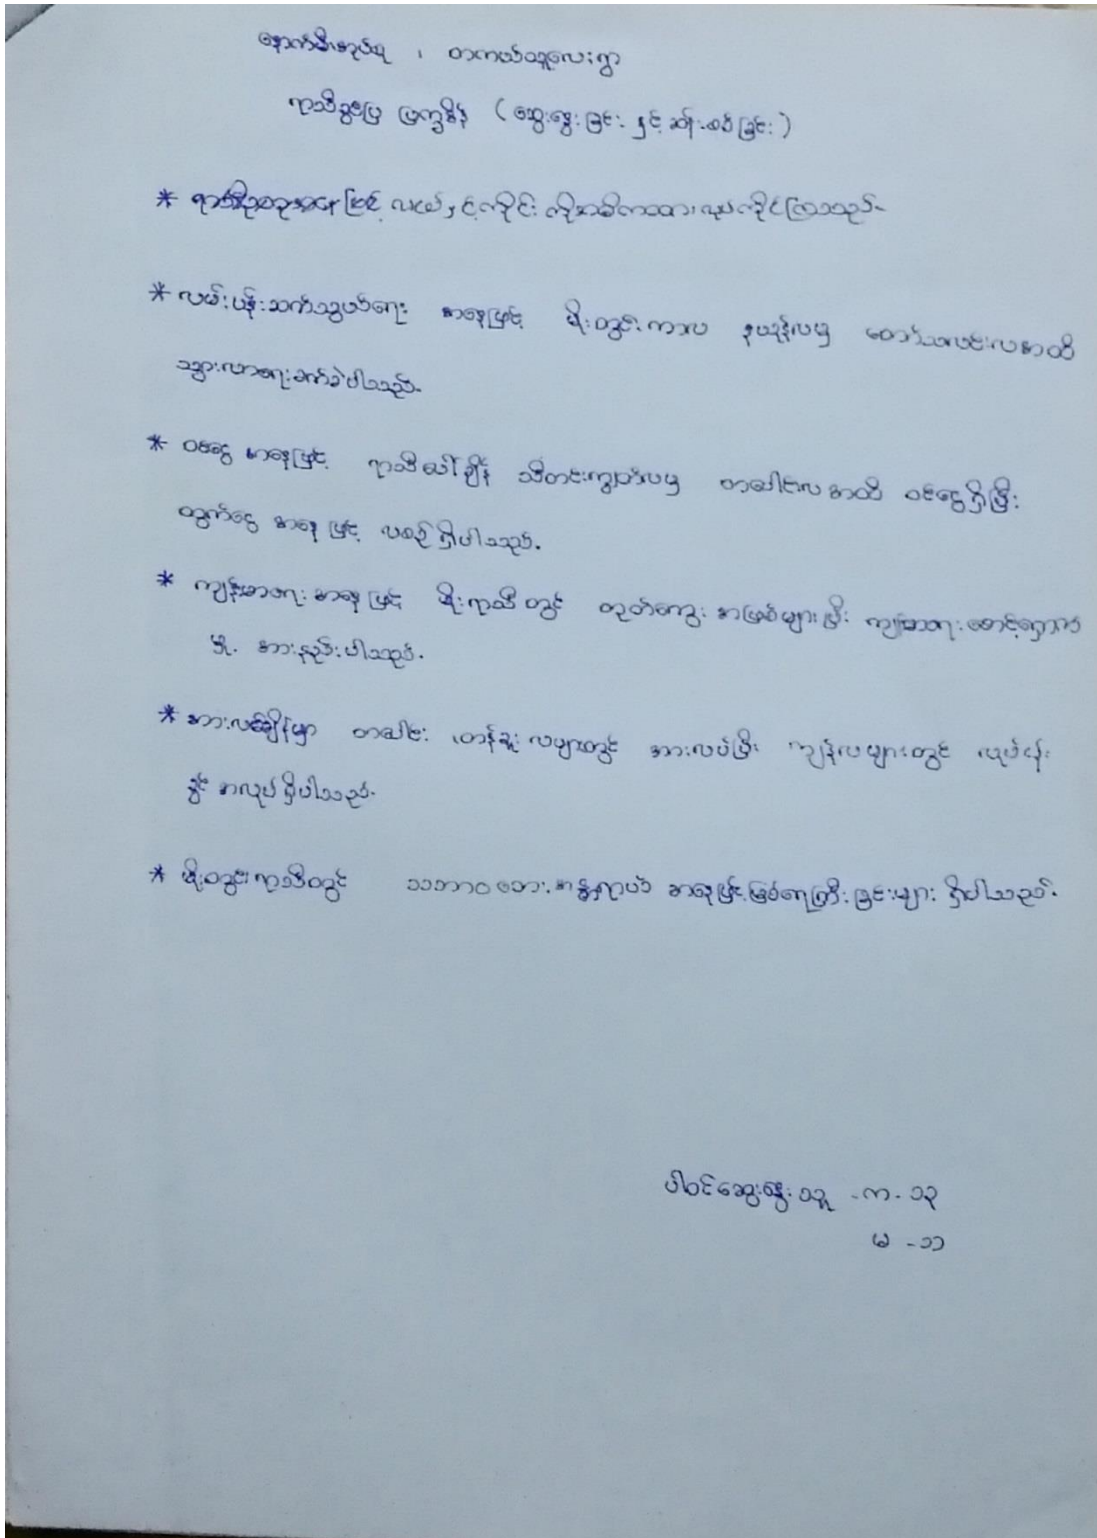 နောက်မီးအုပ်စု ၊ တကယ်သူလေးရွာ
ရာသီခွင်ပြ ပြက္ခဒိန် (ဆွေးနွေးခြင်း နှင့် ဆန်းစစ်ခြင်း)
* ဖြင့် လယ်နှင့်ကိုင်း ကိုအဓိကထား လုပ်ကိုင်ကြသည်။
* လမ်းပန်းဆက်သွယ်ရေး အနေဖြင့် မိုးတွင်းကာလ နယုန်လမှ တော်သလင်းလအထိ
သွားလာရေးခက်ခဲပါသည်။
* ဝင်ငွေ အနေဖြင့် ရာသီပေါ်ချိန် သီတင်းကျွတ်လမှ တပေါင်းလအထိ ဝင်ငွေရှိပြီး
ထွက်ငွေ အနေဖြင့် လစဉ်ရှိပါသည်။
* ကျန်းမာရေး အနေဖြင့် မိုးရာသီတွင် တုတ်ကွေး အဖြစ်များပြီး ကျန်းမာရေးစောင့်ရှောက်
မှု အားနည်းပါသည်။
* အားလပ်ချိန်မှာ တပေါင်း၊ တန်ခူး လများတွင် အားလပ်ပြီး ကျန်လများတွင် လုပ်ငန်း
ခွင် အလုပ်ရှိပါသည်။
* မိုးတွင်းရာသီတွင် သဘာဝဘေးအန္တရာယ် အနေဖြင့် မြစ်ရေကြီးခြင်းများ ရှိပါသည်။
ပါဝင်ဆွေးနွေးသူ - ကျ - ၁၃
မ - ၁၁